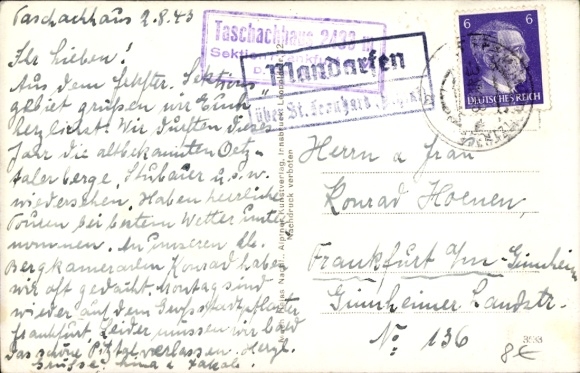 Taschachhaus 2.8.43
Ihr Lieben!
Aus dem Frkfter. Sektions-
gebiet grüßen wir Euch
herzlichst. Wir durften dieses
Jahr die altbekannten Oetz-
talerberge, Stubaier u.s.w.
wiedersehen. Haben herrliche
Touren bei bestem Wetter unter-
nommen. An unseren lb.
Bergkameraden Konrad haben
wir oft gedacht. Montag sind
wieder auf dem Großstadtpflaster
Frankfurt. Leider müssen wir bald
das schöne Pitztal verlassen. Herzl.
Grüsse
Taschachhaus 2433 m
Sektion Frankfurt
Mandarfen
über St. Leonhard
6 6
DEUTSCHES REICH
Nachdruck verboten
Herrn u Frau
Konrad Hoenen,
Frankfurt a/m-Ginnheim
Ginnheimer Landstr.
No 136
8€